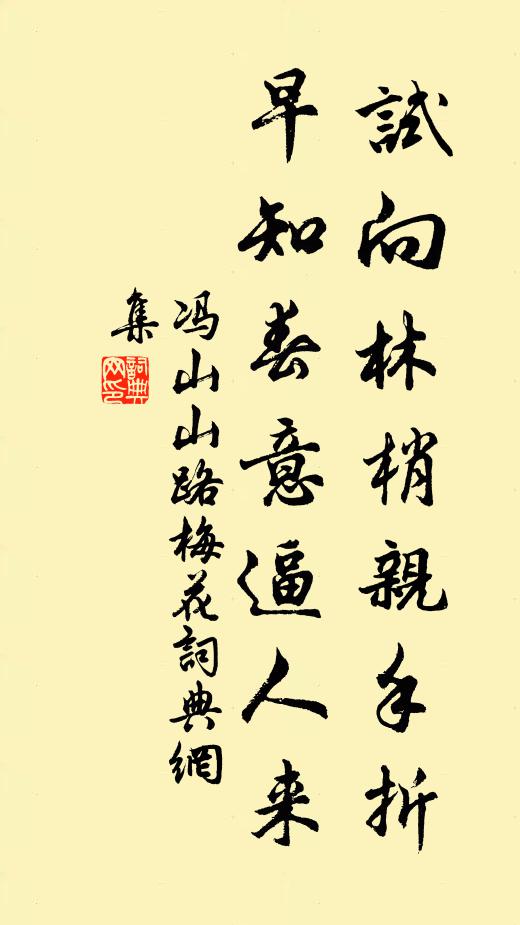 試向林梢親手折
早知春意逼人来
冯山山路梅花詞典網
集
詞典
网印